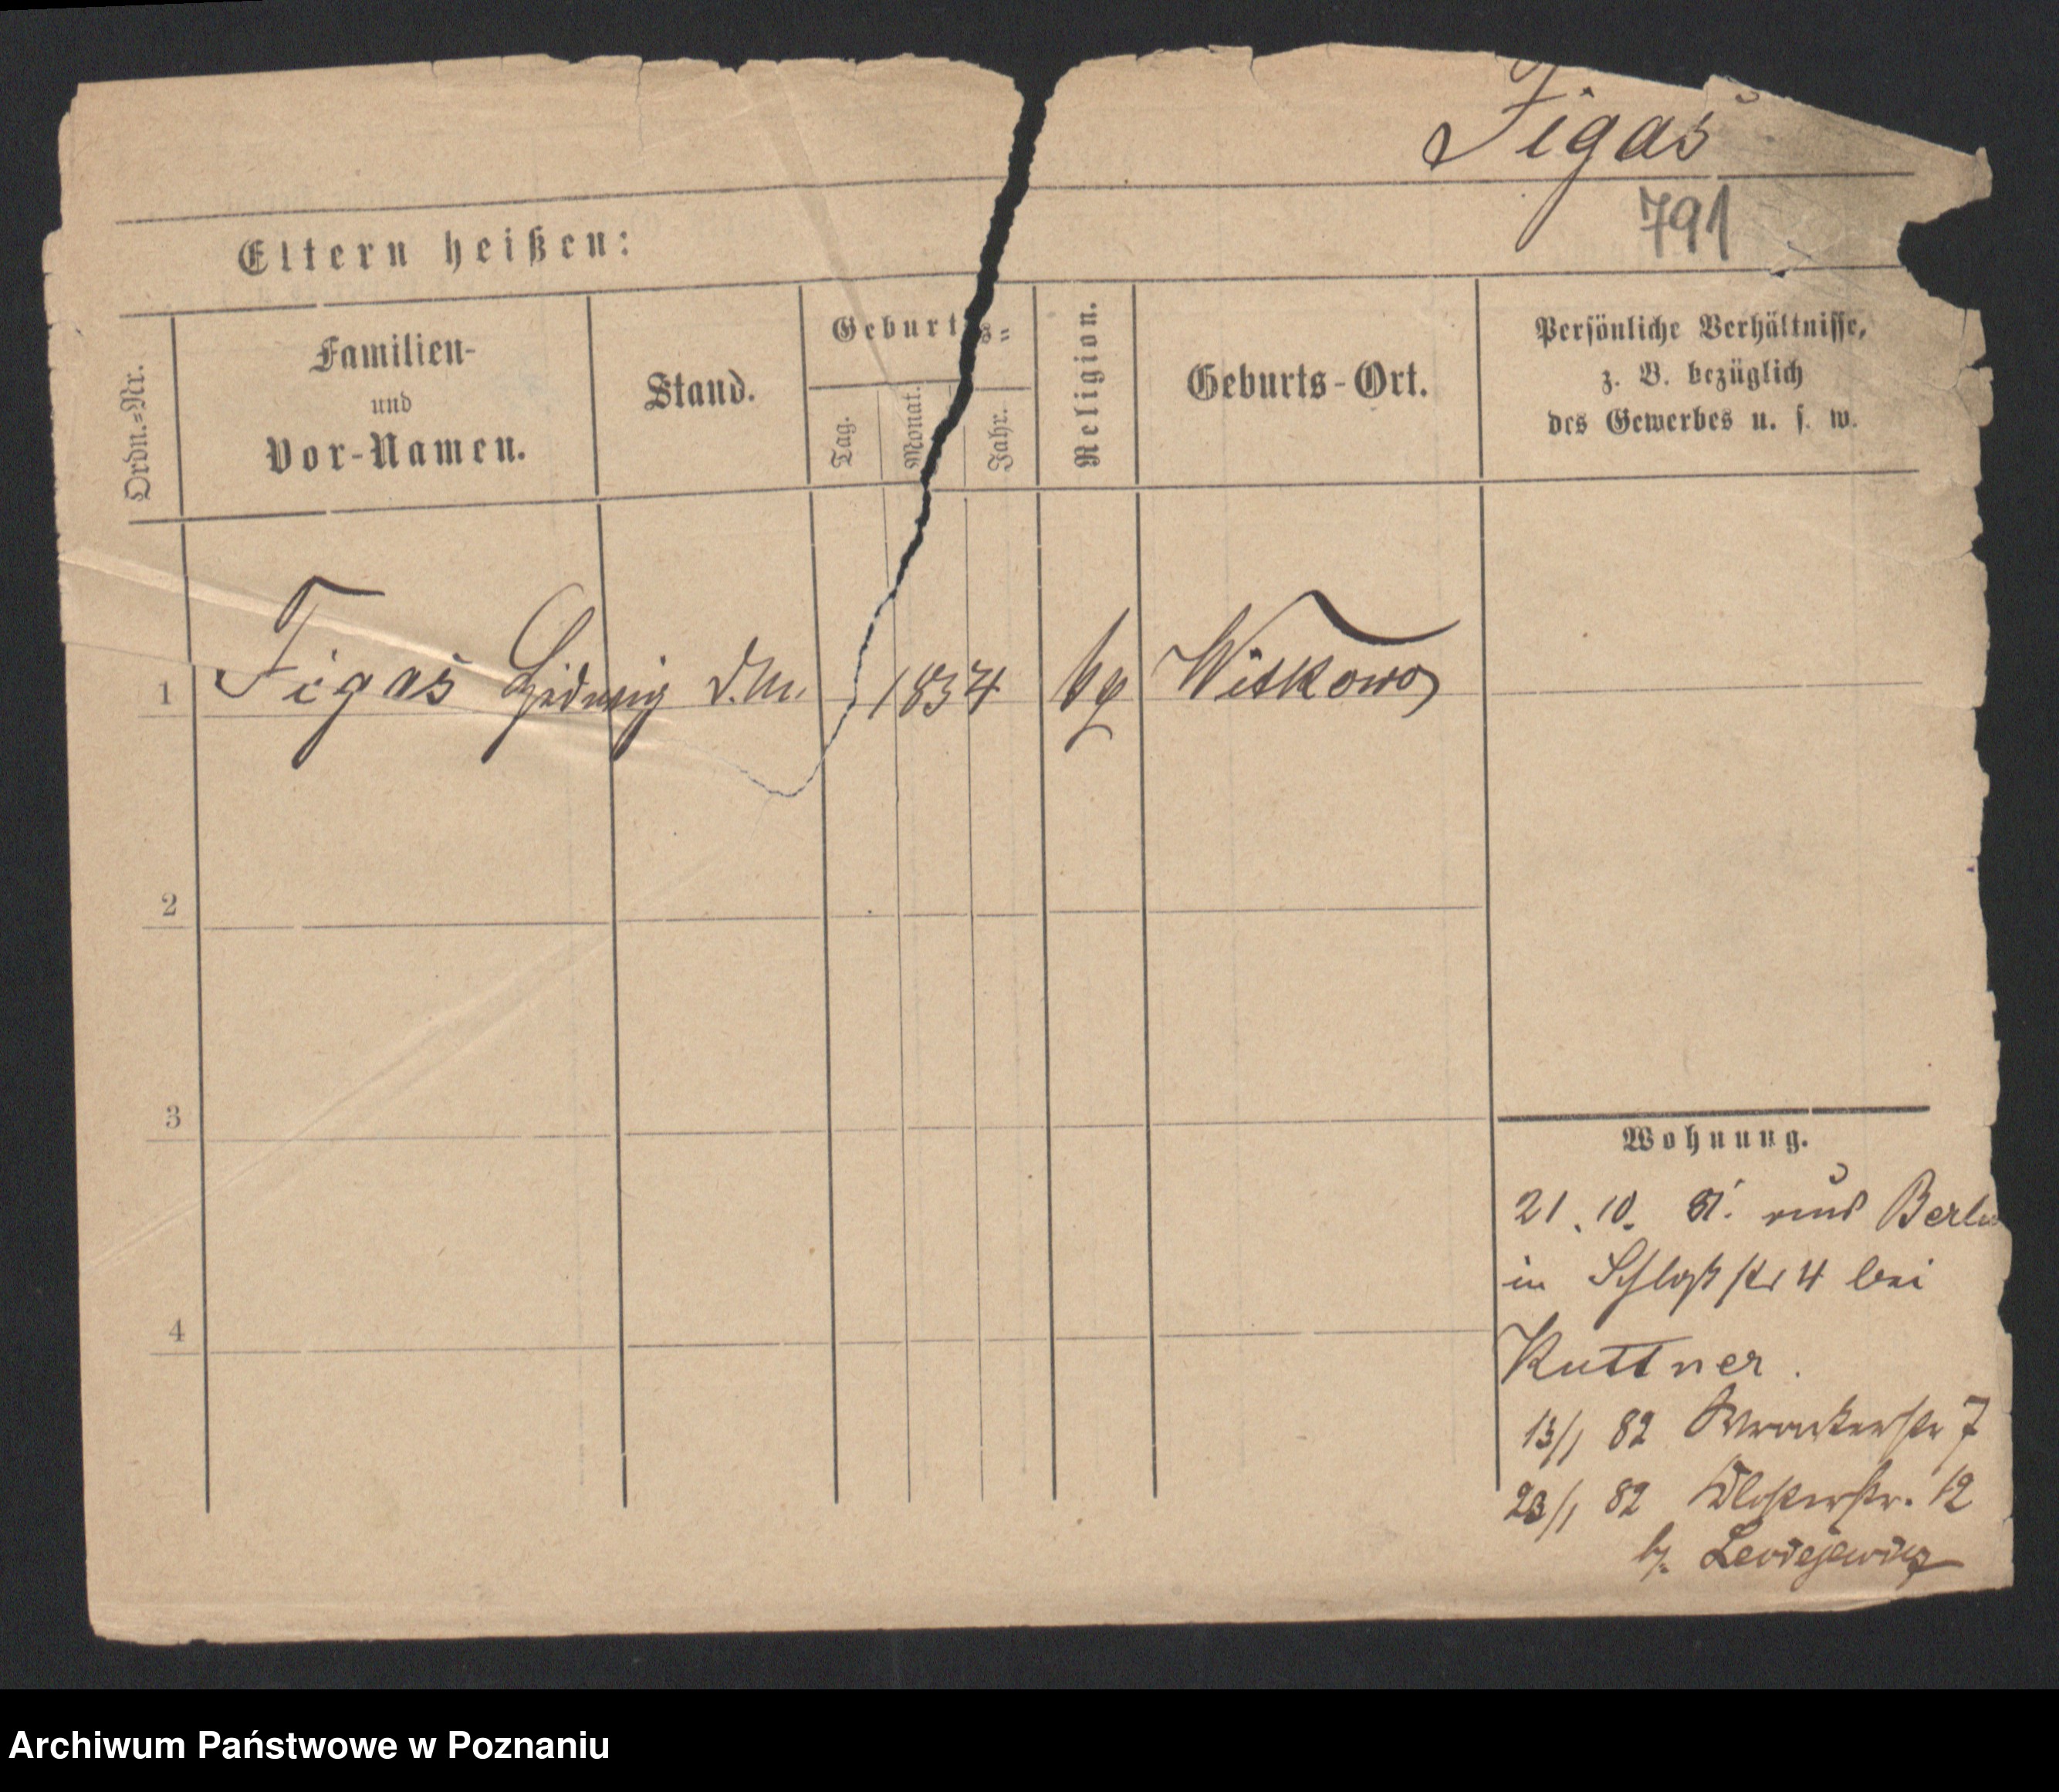 Figas
791
Eltern heißen:
Ordn.=Nr.
Familien-
und
Vor-Namen.
Stand.
Geburts=
Tag.
Monat.
Jahr.
Religion.
Geburts-Ort.
Persönliche Verhältnisse,
z. B. bezüglich
des Gewerbes u. s. w.
1 Figas Hedwig d.M. 1834 Witkowo
2
3
4
Wohnung.
21. 10. 81. aus Berlin
in Schloßstr 4 bei
Kuttner.
13/1 82 Wronkerstr 7
23/1 82 12
b.
Archiwum Państwowe w Poznaniu